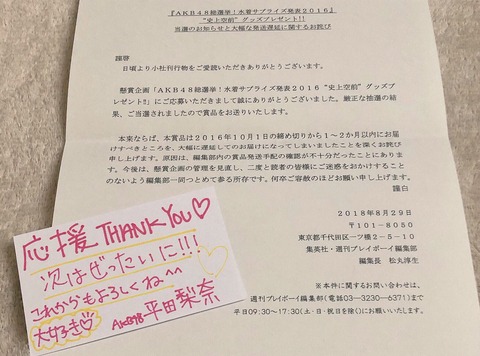 『AKB48総選挙！水着サプライズ発表2016
“史上空前”グッズプレゼント!!
当選のお知らせと大幅な発送遅延に関するお詫び
謹啓
日頃より小社刊行物をご愛読いただきありがとうございます。
懸賞企画「AKB48総選挙！水着サプライズ発表2016“史上空前”グッズプレ
ゼント!」にご応募いただきまして誠にありがとうございました。厳正な抽選の結
果、ご当選されましたので賞品をお送りいたします。
本来ならば、本賞品は2016年10月1日の締め切りから1~2か月以内にお届
けすべきところを、大幅に遅延してのお届けになってしまいましたことを深くお詫び
申し上げます。原因は、編集部内の賞品発送手配の確認が不十分だったことにありま
す。今後は、懸賞企画の管理を見直し、二度と読者の皆様にご迷惑をおかけすること
のないよう編集部一同つとめて参る所存です。何卒ご容赦のほどお願い申し上げます。
謹白
2018年8月29日
〒101-8050
東京都千代田区一ツ橋2-5-10
集英社・週刊プレイボーイ編集部
編集長 松丸淳生
※本件に関するお問い合わせは、
週刊プレイボーイ編集部(電話03-3230-6371)まで
平日09:30~17:30(土・日・祝日を除く)にお願いいたします。
応援THANK YOU♡
次はぜったいに!!!
これからもよろしくね^^
大好き♡
AKB48 平田梨奈